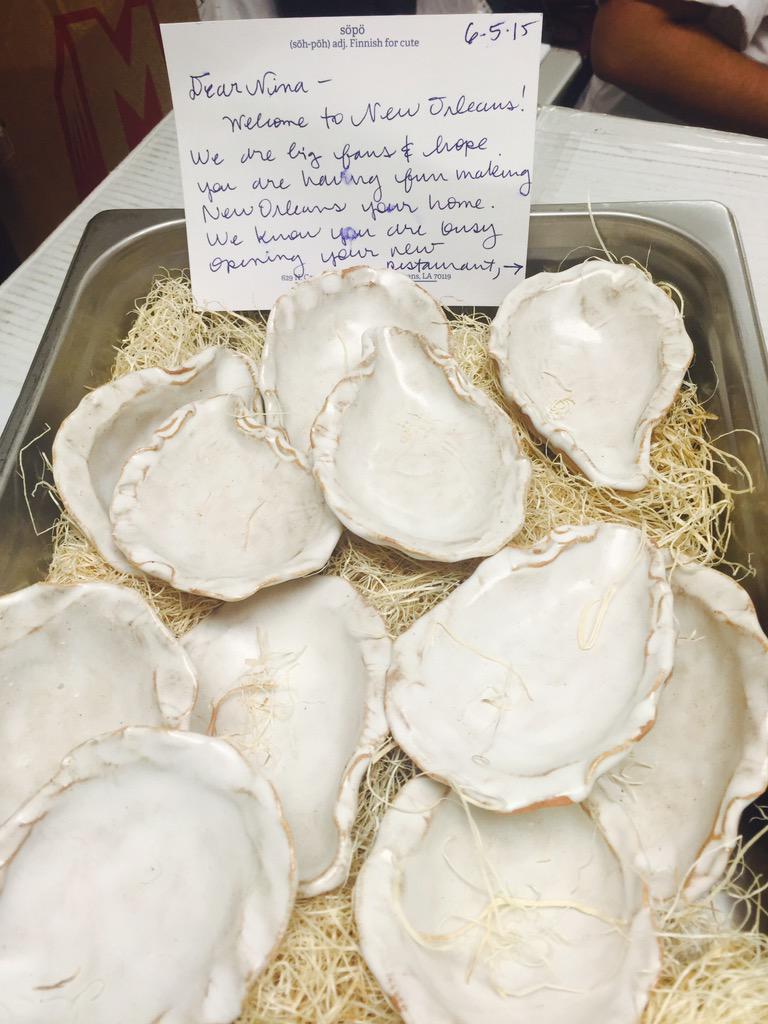 söpö
(sōh-pōh) adj. Finnish for cute
6-5-15
Dear Nina -
Welcome to New Orleans!
We are big fans & hope
you are having fun making
New Orleans your home.
We know you are busy
opening your new
restaurant, →
629 N. , LA 70119
M